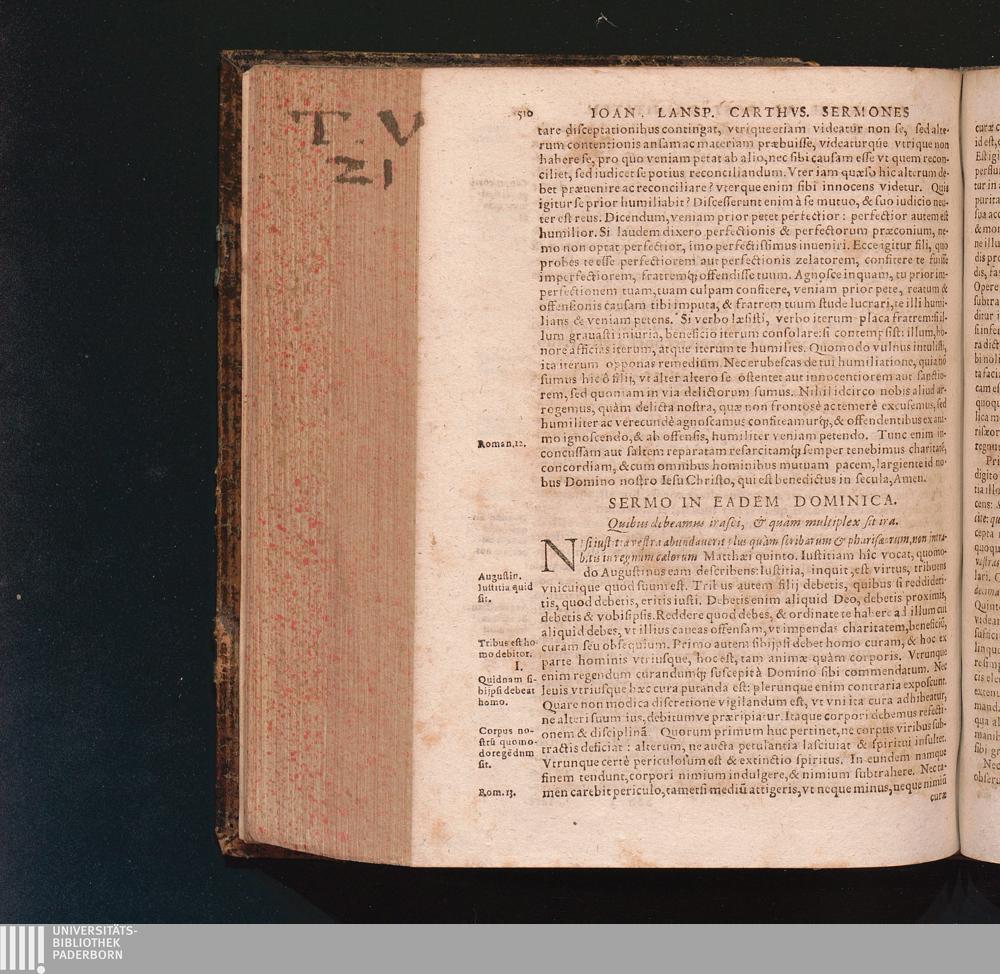 T. V
21
510 IOAN. LANSP. CARTHVS. SERMONES
tare disceptationibus contingat, vtrique etiam videatur non se, sed alte-
rum contentionis ansam ac materiam præbuisse, videaturque vtrique non
habere se, pro quo veniam petat ab alio, nec sibi causam esse vt quem recon-
ciliet, sed iudicet se potius reconciliandum. Vter iam quæso hic alterum de-
bet præuenire ac reconciliare? vterque enim sibi innocens videtur. Quis
igitur se prior humiliabit? Discesserunt enim à se mutuo, & suo iudicio neu-
ter est reus. Dicendum, veniam prior petet perfectior: perfectior autem est
humilior. Si laudem dixero perfectionis & perfectorum præconium, ne-
mo non optat perfectior, imo perfectissimus inueniri. Ecce igitur fili, quo
probes te esse perfectiorem aut perfectionis zelatorem, confitere te fuisse
imperfectiorem, fratremq́; offendisse tuum. Agnosce inquam, tu prior im-
perfectionem tuam, tuam culpam confitere, veniam prior pete, reatum &
offensionis causam tibi imputa, & fratrem tuum stude lucrari, te illi humi-
lians & veniam petens. Si verbo læsisti, verbo iterum placa fratrem: si il-
lum grauasti iniuria, beneficio iterum consolare: si contempsisti illum, ho-
nore afficias iterum, atque iterum te humilies. Quomodo vulnus intulisti,
ita iterum opponas remedium. Nec erubescas de tui humiliatione, quia nō
sumus hic ô filij, vt alter altero se ostentet aut innocentiorem aut sanctio-
rem, sed quoniam in via delictorum sumus. Nihil idcirco nobis aliud ar-
rogemus, quàm delicta nostra, quæ non frontosè ac temerè excusemus, sed
humiliter ac verecundè agnoscamus confiteamurq́;, & offendentibus ex ani-
mo ignoscendo, & ab offensis, humiliter veniam petendo. Tunc enim in-
Roman. 12.
concussam aut saltem reparatam resarcitamq́; semper tenebimus charitatē,
concordiam, & cum omnibus hominibus mutuam pacem, largiente id no-
bus Domino nostro Iesu Christo, qui est benedictus in secula, Amen.
SERMO IN EADEM DOMINICA.
Quibus debeamus irasci, & quàm multiplex sit ira.
Nisi iustitia vestra abundauerit plus quàm scribarum & pharisæorum, non intra-
bitis in regnum cælorum Matthæi quinto. Iustitiam hîc vocat, quomo-
do Augustinus eam describens: Iustitia, inquit, est virtus, tribuens
Augustin.
Iustitia quid
sit.
vnicuique quod suum est. Tribus autem filij debetis, quibus si reddide-
tis, quod debetis, eritis iusti. Debetis enim aliquid Deo, debetis proximis,
debetis & vobisipsis. Reddere quod debes, & ordinate te habere ad illum cui
aliquid debes, vt illius caueas offensam, vt impendas charitatem, beneficiū,
curam seu obsequium. Primo autem sibijpsi debet homo curam, & hoc ex
Tribus est ho-
mo debitor.
I.
Quidnam si-
bijpsi debeat
homo.
parte hominis vtriusque, hoc est, tam animæ quàm corporis. Vtrunque
enim regendum curandumq́; suscepit à Domino sibi commendatum. Nec
leuis vtriusque hæc cura putanda est: plerunque enim contraria exposcunt.
Quare non modica discretione vigilandum est, vt vni ita cura adhibeatur,
ne alteri suum ius, debitumve præripiatur. Itaque corpori debemus refecti-
onem & disciplinā. Quorum primum huc pertinet, ne corpus viribus sub-
Corpus no-
strū quomo-
do regēdum
sit.
tractis deficiat: alterum, ne aucta petulantia lasciuiat & spiritui insultet.
Vtrunque certè periculosum est & extinctio spiritus. In eundem namque
finem tendunt, corpori nimium indulgere, & nimium subtrahere. Nec ta-
Rom. 13.
men carebit periculo, tametsi mediū attigeris, vt neque minus, neque nimiū
curæ
UNIVERSITÄTS-
BIBLIOTHEK
PADERBORN